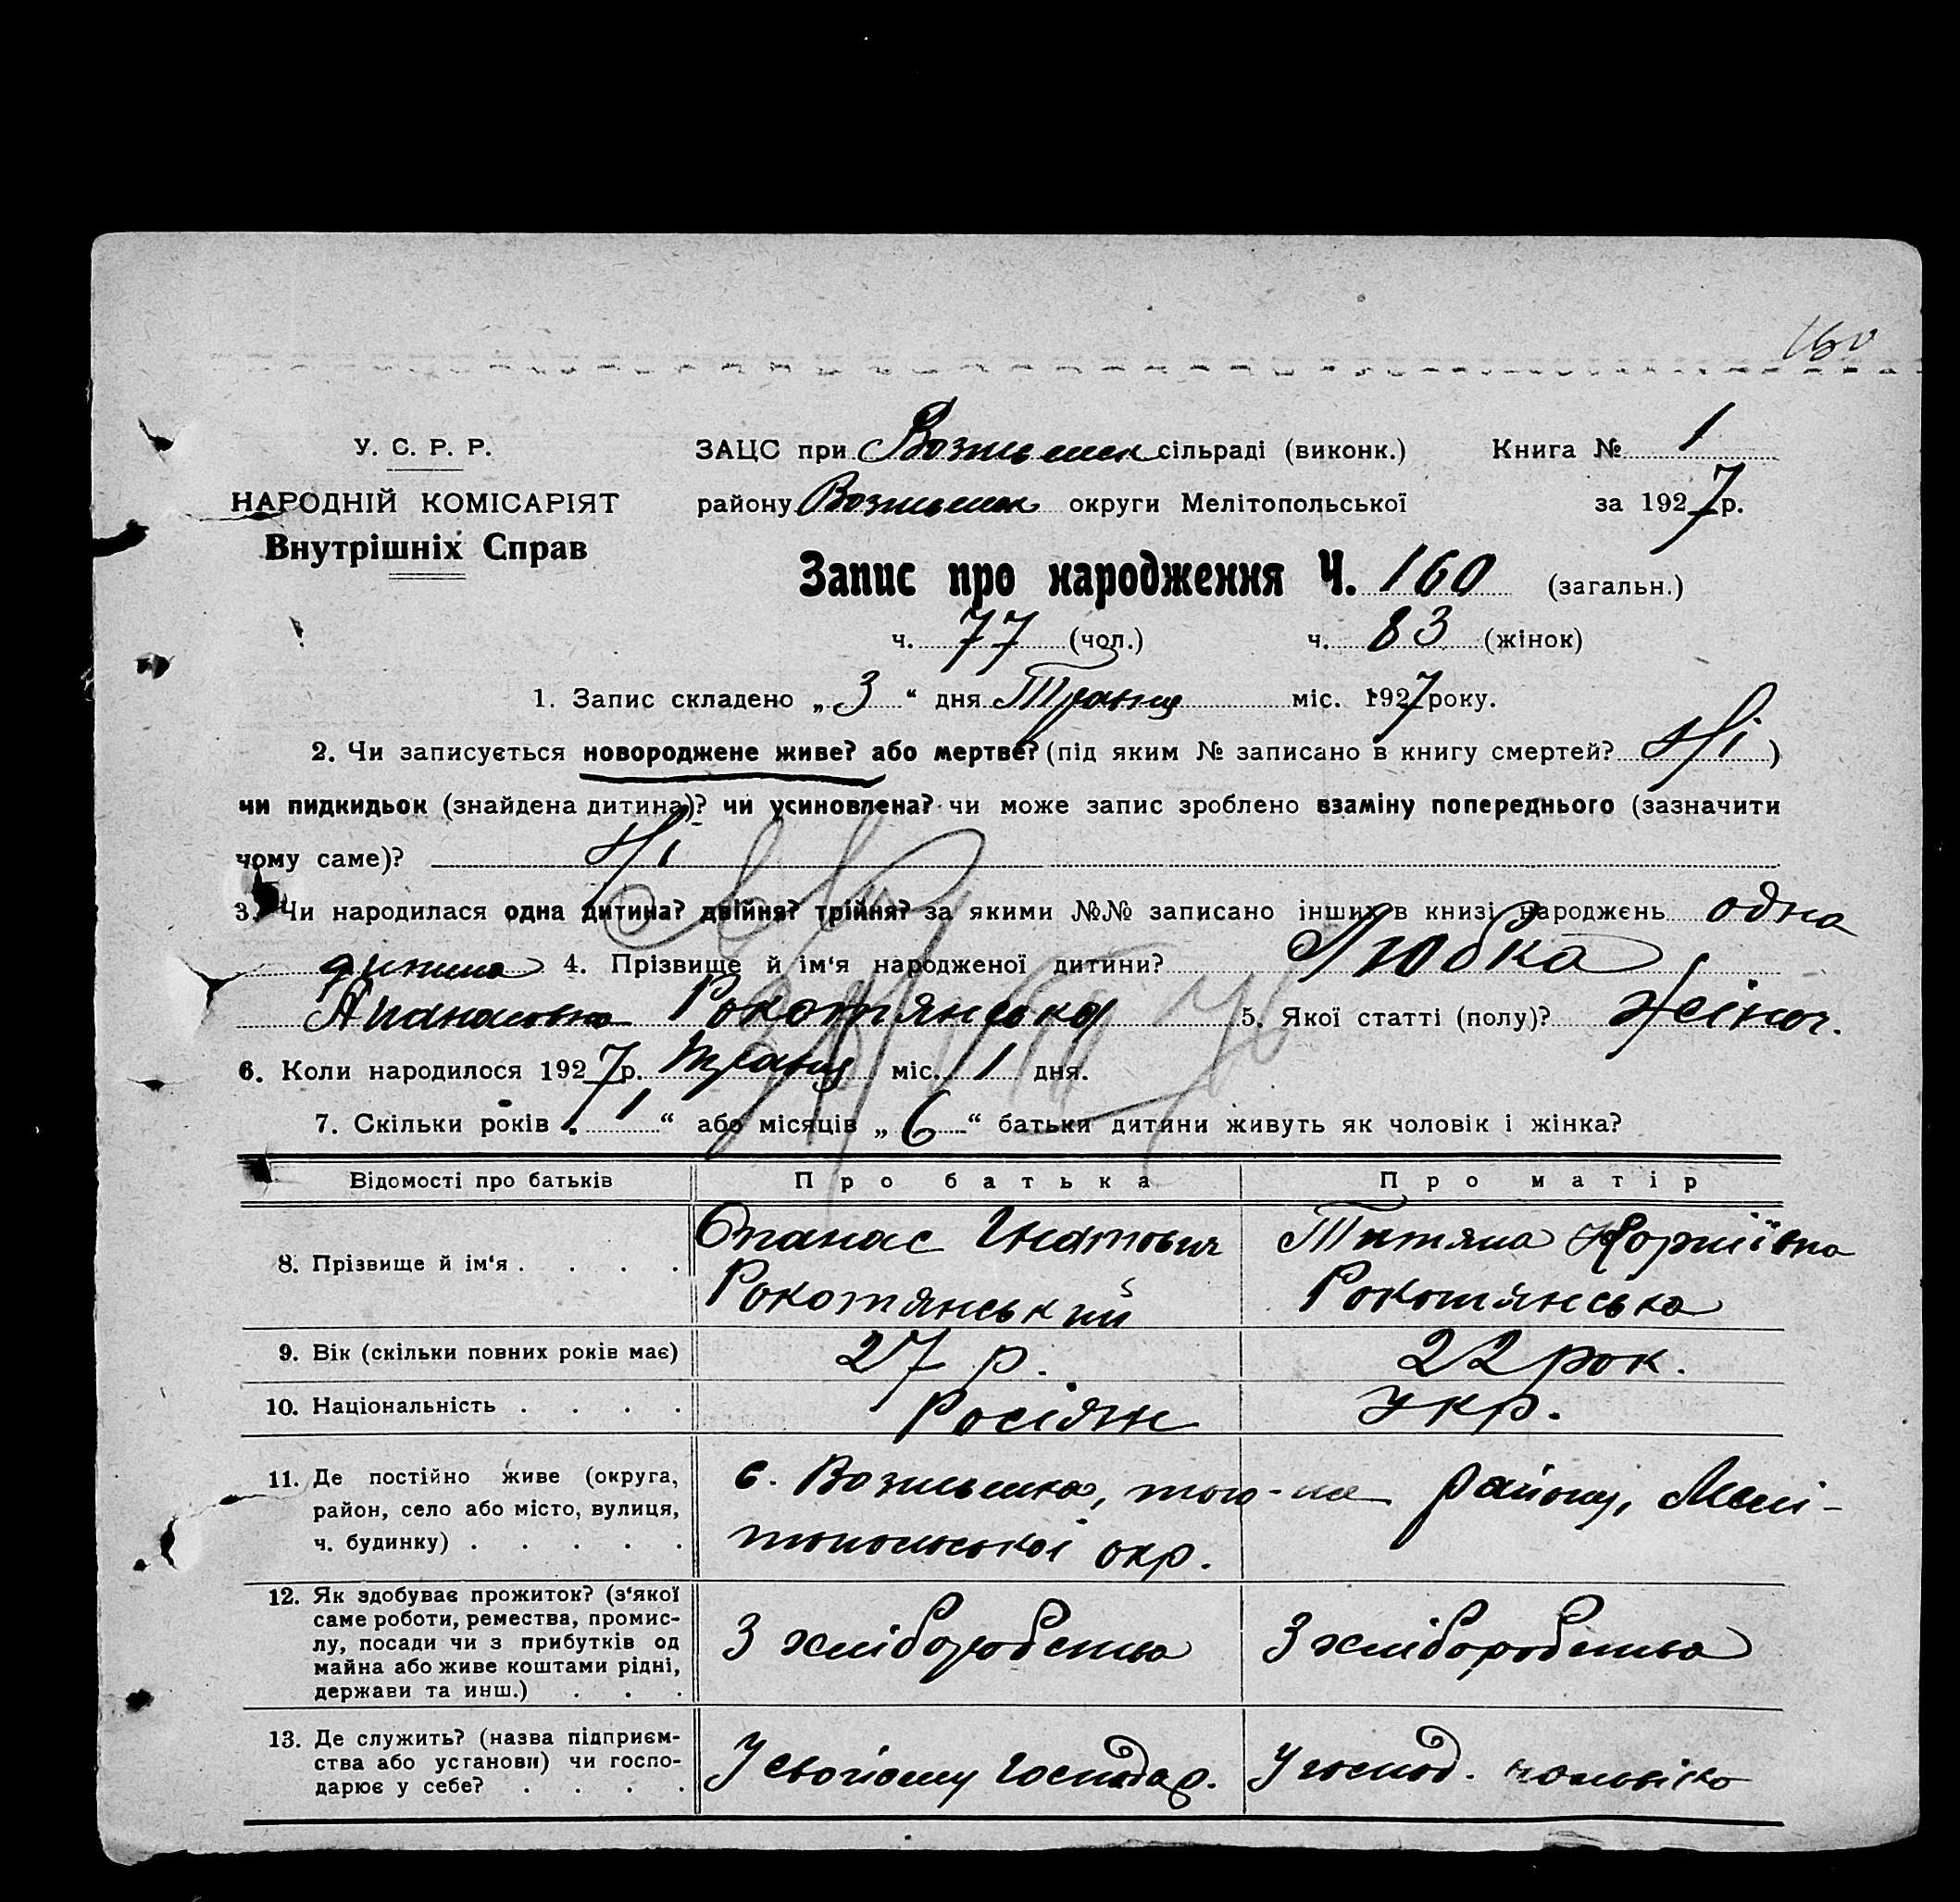 160
У. С. Р. Р.
НАРОДНІЙ КОМІСАРІЯТ
Внутрішніх Справ
ЗАЦС при Вознесенск сільраді (виконк.) Книга № 1
району Вознесенск округи Мелітопольської за 1927 р.
Запис про народження Ч. 160 (загальн.)
ч. 77 (чол.) ч. 83 (жінок)
1. Запис складено „ 3 “ дня Травня міс. 1927 року.
2. Чи записується новороджене живе? або мертве? (під яким № записано в книгу смертей? Ні )
чи пидкидьок (знайдена дитина)? чи усиновлена? чи може запис зроблено взаміну попереднього (зазначити
чому саме)? Ні
3. Чи народилася одна дитина? двійня? трійня? за якими №№ записано інших в книзі народжень одна
дитина 4. Прізвище й ім‘я народженої дитини? Любка
Апанасовна Рокотянська 5. Якої статті (полу)? Жіноч.
6. Коли народилося 1927 р. Травня міс. 1 дня.
7. Скільки років „ 1 “ або місяців „ 6 “ батьки дитини живуть як чоловік і жінка?
Відомості про батьків Про батька Про матір
8. Прізвище й ім‘я . . . . Опанас Гнатович Рокотянський Титяна Рокотянська
9. Вік (скільки повних років має) 27 р. 22 рок.
10. Національність . . . . Росіян Укр.
11. Де постійно живе (округа, район, село або місто, вулиця, ч. будинку) . . . . . с. Вознесенка, того-ж району, Мелітопольської окр.
12. Як здобуває прожиток? (з‘якої саме роботи, ремества, промислу, посади чи з прибутків од майна або живе коштами рідні, держави та инш.) . . . З хліборобства З хліборобства
13. Де служить? (назва підприємства або установи) чи господарює у себе? . . . . У своїому господар. У господ. чоловіка